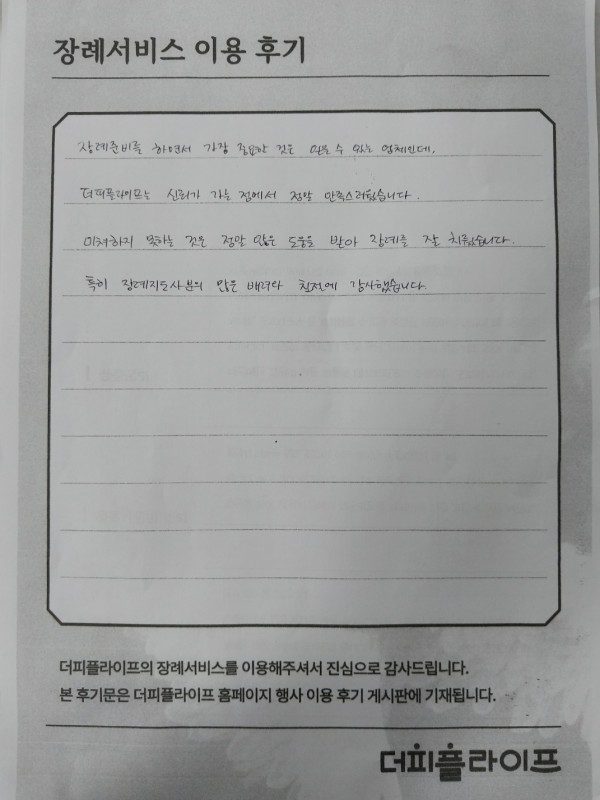 장례서비스 이용 후기
장례준비를 하면서 가장 중요한 것은 믿을 수 있는 업체인데,
더피플라이프는 신뢰가 가는 점에서 정말 만족스러웠습니다.
미처하지 못하는 것은 정말 많은 도움을 받아 장례를 잘 치뤘습니다.
특히 장례지도사분의 많은 배려와 친절에 감사했습니다.
더피플라이프의 장례서비스를 이용해주셔서 진심으로 감사드립니다.
본 후기문은 더피플라이프 홈페이지 행사 이용 후기 게시판에 기재됩니다.
더피플라이프